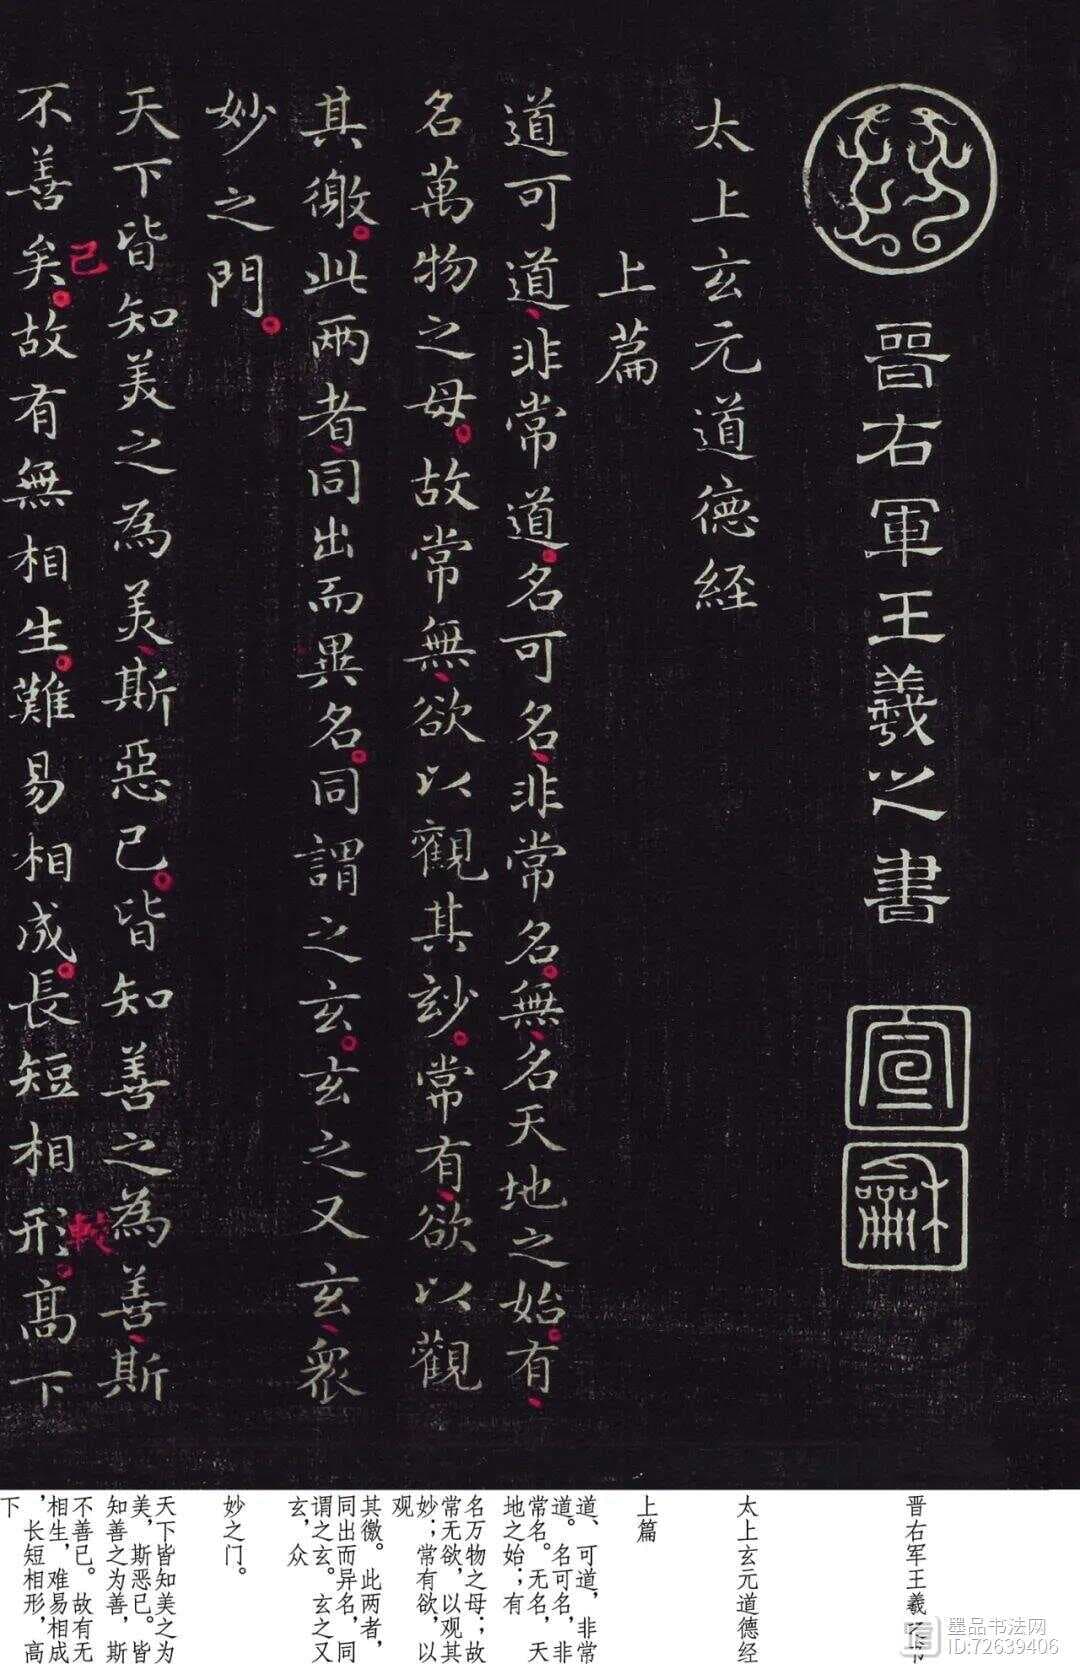 晉右軍王羲之書
宣
龢
太上玄元道德経
上篇
道可道、非常道。名可名、非常名。無、名天地之始。有、
名萬物之母。故常無、欲以觀其玅。常有、欲以觀
其徼。此两者、同出而異名。同謂之玄。玄之又玄、衆
妙之門。
天下皆知美之為美、斯惡已。皆知善之為善、斯
已
較
不善矣。故有無相生。難易相成。長短相形。高下
晋右军王羲之书
太上玄元道德经
上篇
道、可道，非常
道。名可名，非
常名。无名，天
地之始；有
名万物之母；故
常无欲，以观其
妙；常有欲，以
观
其徼。此两者，
同出而异名，同
谓之玄。玄之又
玄，众
妙之门。
天下皆知美之为
美，斯恶已。皆
知善之为善，斯
不善已。故有无
相生，难易相成
，长短相形，高
下
墨品书法网
ID:72639406